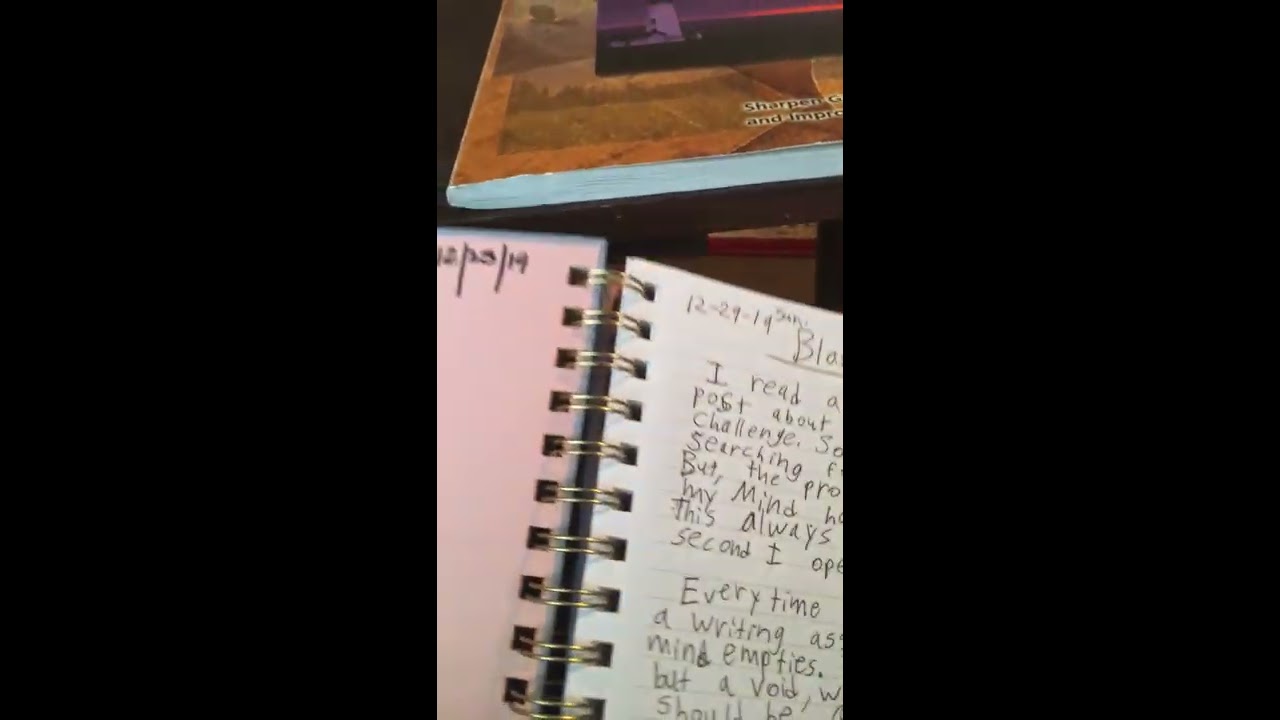 Sharpen G
and Impro
12/25/19
12-29-19 Sun.
Bla
I read a
post about
Challenge. So
searching f
But, the pro
my Mind ha
this always
second I ope
Everytime
a writing ass
mind empties.
but a void, w
should be,